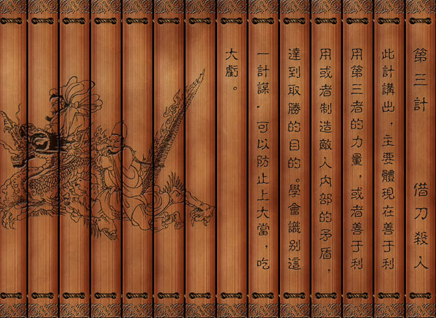 第三計 借刀殺人
此計講出，主要體現在善于利
用第三者的力量，或者善于利
用或者制造敵人內部的矛盾，
達到取勝的目的。學會識别這
一計謀，可以防止上大當，吃
大虧。